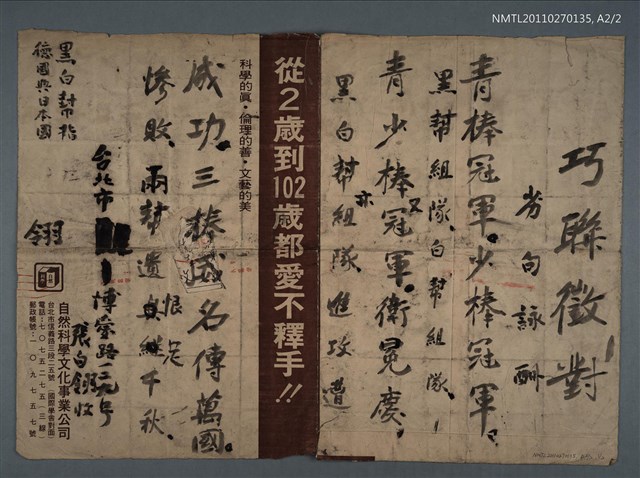 NMTL20110270135, A2/2
巧聯徵對
芳句詠酬
青棒冠軍。少棒冠軍。
黑幫組隊。白幫組隊。
青少棒又冠軍。衛冕慶
黑白幫亦組隊。進攻遭
從2歲到102歲都愛不釋手!!
科學的真・倫理的善・文藝的美
成功。三棒威名傳萬國。
慘敗。兩幫遺恨
千秋。
黑白幫指
德國與日本國
台北市
博愛路
號
張白翎收
翎
自然科學文化事業公司
台北市信義路三段二五號(國際學舍對面)
電話:七〇七五二七五(三線)
郵政帳號:一〇九七五七號